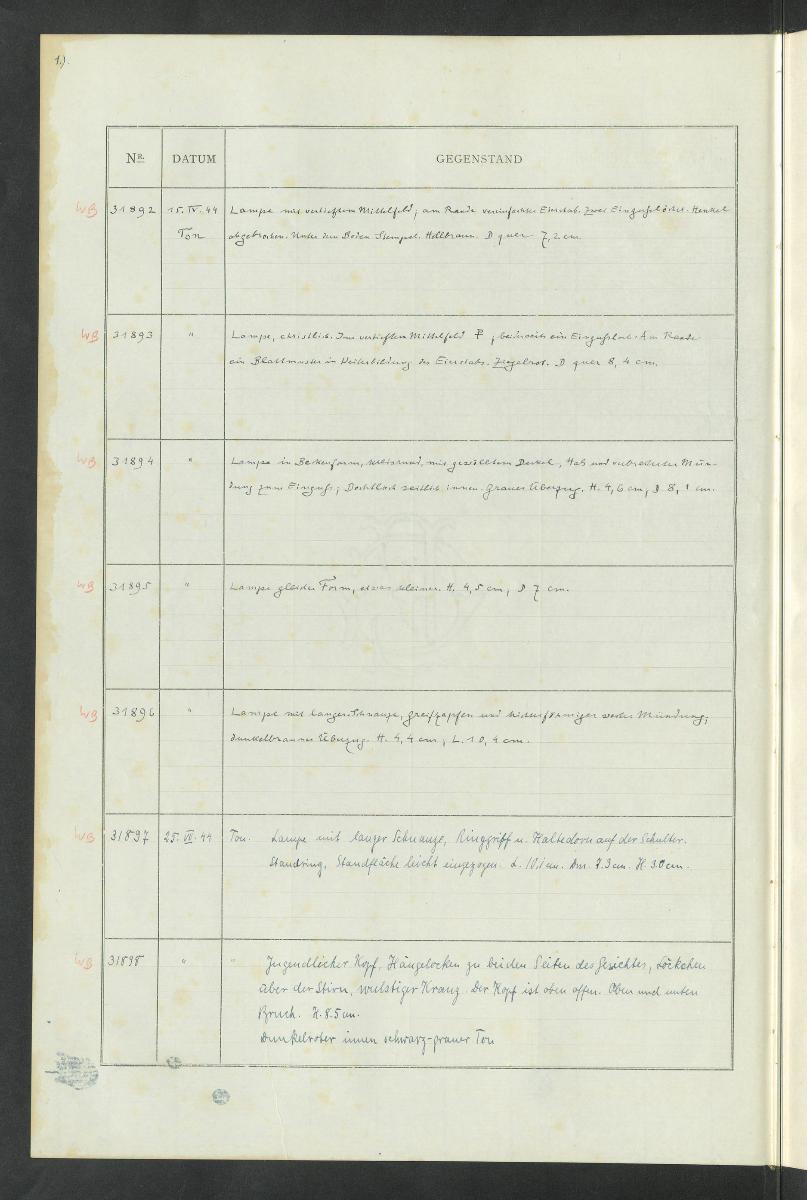 1.).
NR. DATUM GEGENSTAND
WB 31892 15. IV. 44 Lampe mit vertieftem Mittelfeld; am Rande vereinfachter Eierstab. Zwei Eingußlöcher. Henkel
Ton abgebrochen. Unter dem Boden Stempel. Hellbraun. D quer 7,2 cm
WB 31893 " Lampe, christlich. Im vertieften Mittelfeld ; beiderseits ein Eingußloch. Am Rande
ein Blattmuster in Weiterbildung des Eierstabs. Ziegelrot. D quer 8,4 cm.
WB 31894 " Lampe in Beckenform, kreisrund, mit gewölbtem Deckel, Hals und verbreiterter Mün-
dung zum Einguß; Dochtloch seitlich innen. Grauer Überzug. H. 4,6 cm, D 8,1 cm.
WB 31895 " Lampe gleicher Form, etwas kleiner. H. 4,5 cm, D 7 cm.
WB 31896 " Lampe mit langer Schnauze, Greifzapfen und weiter Mündung;
dunkelbrauner Überzug. H. 4,4 cm, L. 10,4 cm.
WB 31897 25. VI. 44 Ton. Lampe mit langer Schnauze, Ringgriff u. Haltedorn auf der Schulter.
Standring, Standfläche leicht eingezogen. L. 10.1 cm. Dm. 7.3 cm. H. 3.0 cm.
WB 31898 " " Jugendlicher Kopf, Hängelocken zu beiden Seiten des Gesichtes, Löckchen
über der Stirn, wulstiger Kranz. Der Kopf ist oben offen. Oben und unten
Bruch. H. 8.5 cm.
Dunkelroter innen schwarz-grauer Ton